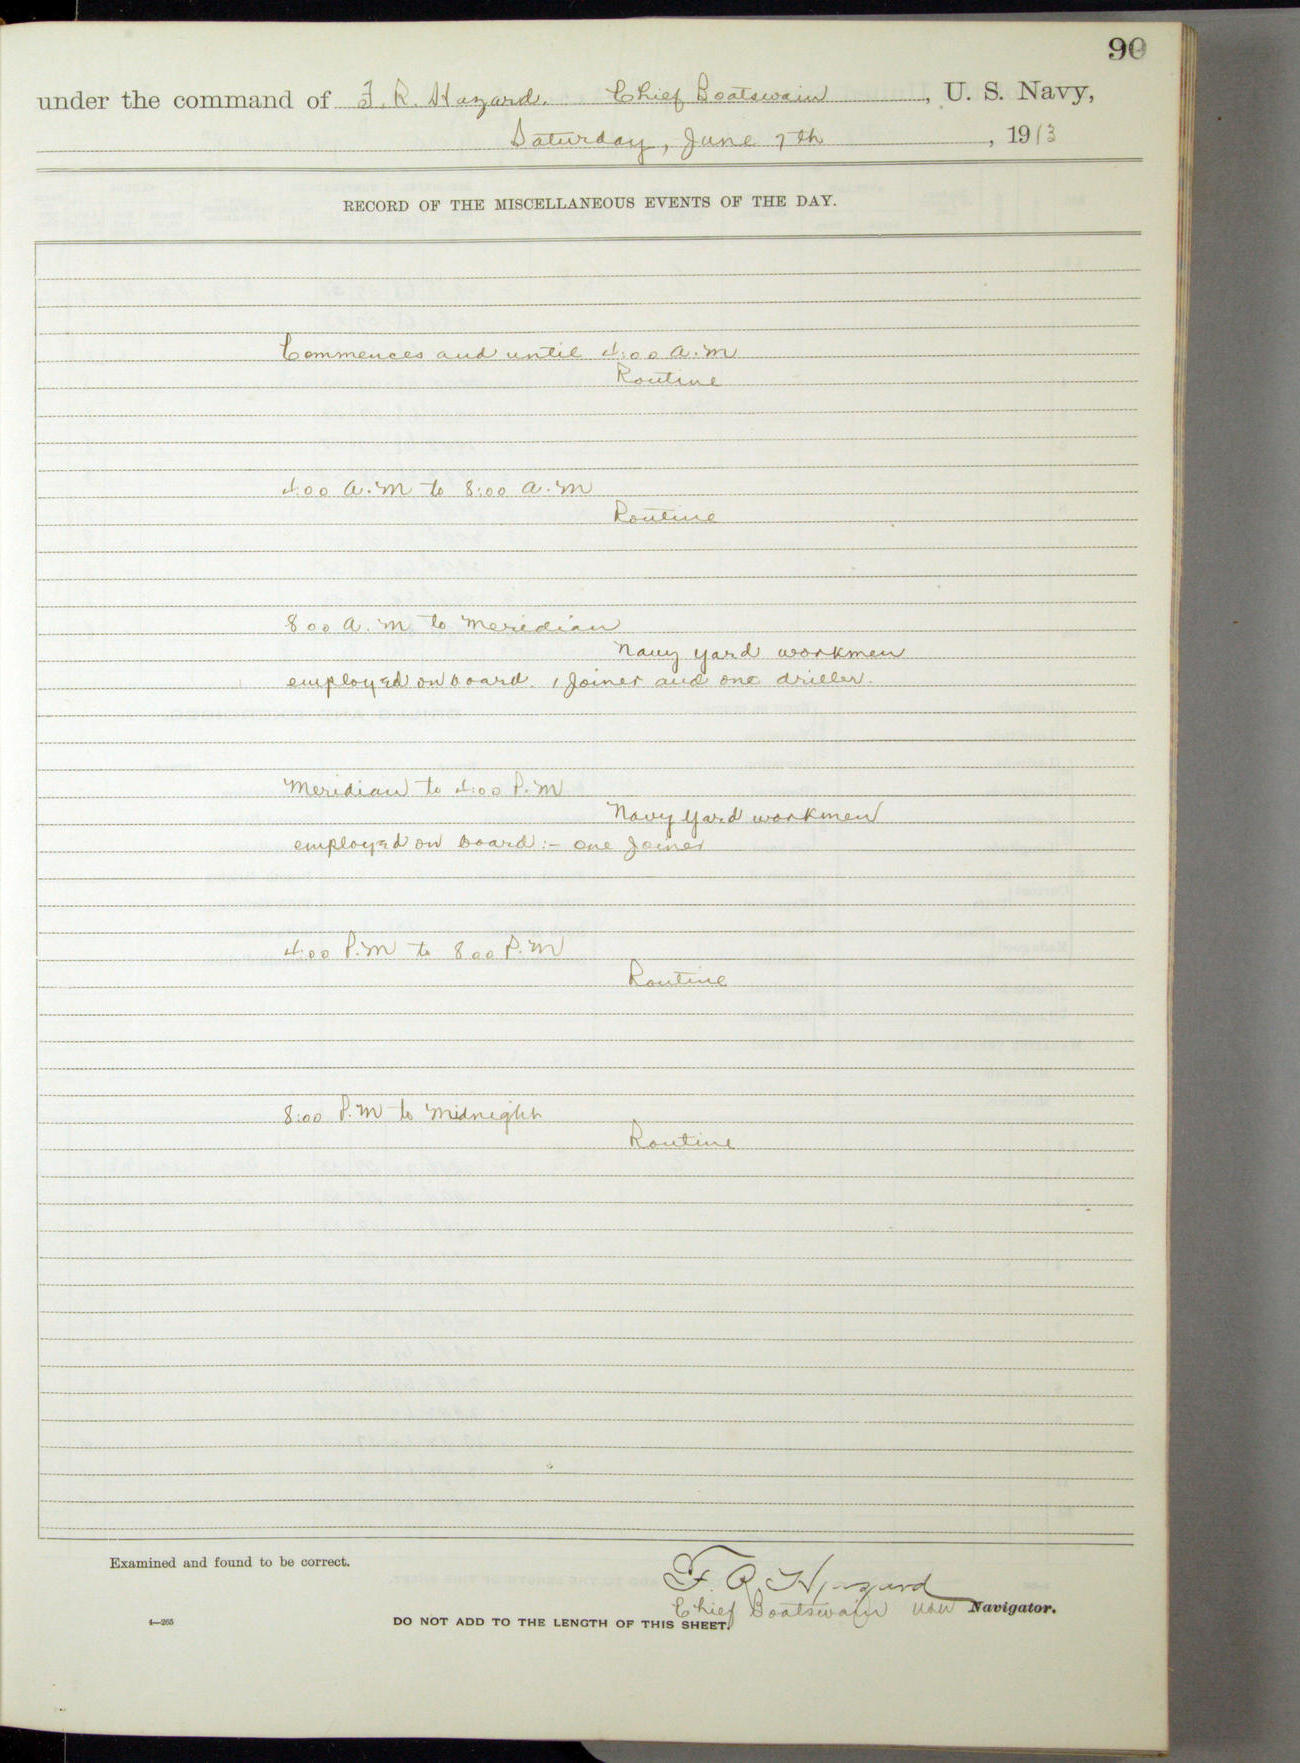 90
under the command of F. R. Hazard. Chief Boatswain, U. S. Navy,
Saturday, June 7th, 1913
RECORD OF THE MISCELLANEOUS EVENTS OF THE DAY.
Commences and until 4:00 A.M
Routine
4:00 A.M to 8:00 A.M
Routine
8 00 A.M to Meridian
Navy Yard workmen
employed on board. 1 Joiner and one driller.
Meridian to 4:00 P.M
Navy Yard workmen
employed on board:- one Joiner
4:00 P.M to 8 00 P.M
Routine
8:00 P.M to Midnight
Routine
Examined and found to be correct.
F. R. Hazard
Chief Boatswain USN Navigator.
4—265
DO NOT ADD TO THE LENGTH OF THIS SHEET.